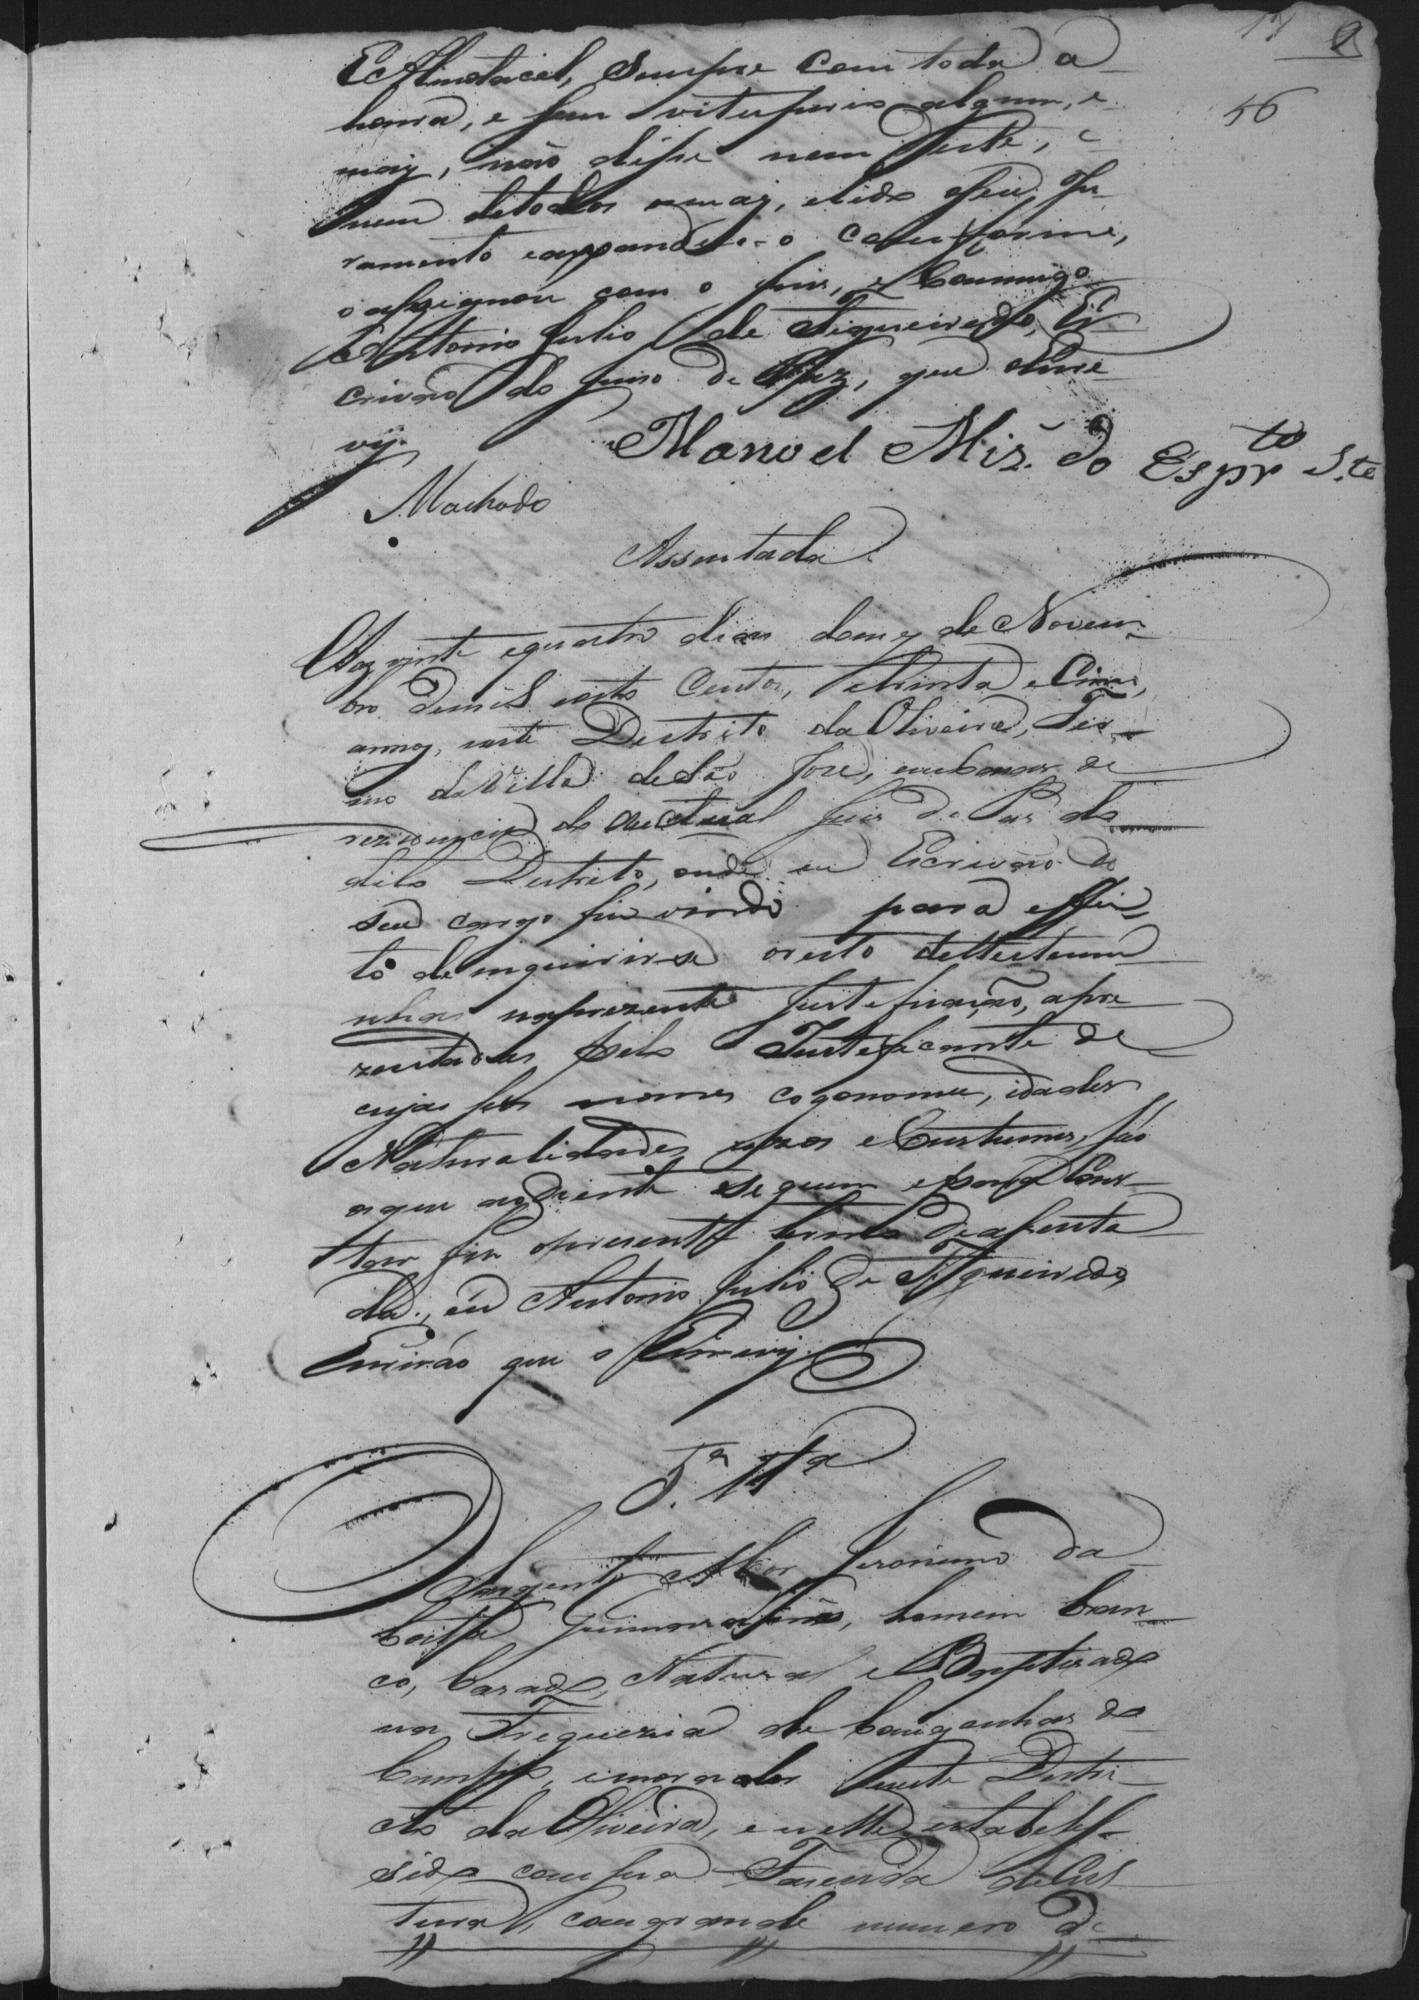 17 9
56
E Almotacel, Sempre com toda a
honra, e sem vituperio algum, e
mais, não disse nem deste, e
nem detodos o mais, elido o seu Ju-
ramento e axpando-o Conforme,
o assignou com o Juis, e Commigo
Antonio Julio de Figueiredo, Es-
crivão do Juizo de Paz, que o Escre
vy.
Manoel Miz. do Esprto S.to
Machado
Assentada
Aos vinte e quatro dias domes de Novem-
bro demil oito Centos, e trinta e Cinco,
annos, neste Destrito da Oliveira, Ter-
mo da Villa de São José, em Cazas de
rezidencia do auctual Juis de Pas do
dito Destrito, onde eu Escrivão de
seu cargo fui vindo para effei-
to de inquirir-se o resto dasTestemu
nhas naprezente Justeficação, apre
zentadas pelo Justeficante de
cujas seos nomes cognomes, idades
Naturalidades uzos e Custumes são
os que ao diente se seguem epara Cons-
tar fis o prezente termo de assenta
da, eu Antonio Julio de Figueiredo
Escrivão que o Escrevy
5.a Tt.a
O Sargento Mor Jeronimo da
Costa Guimaraens, homem bran
co, Cazado, Natural e Baptizado
na Freguezia de Congonhas do
Campo, e morador neste Destri-
cto da Oliveira, e nelle estabelle-
sido com sua Fazenda de Cul
tura, com grande numero de